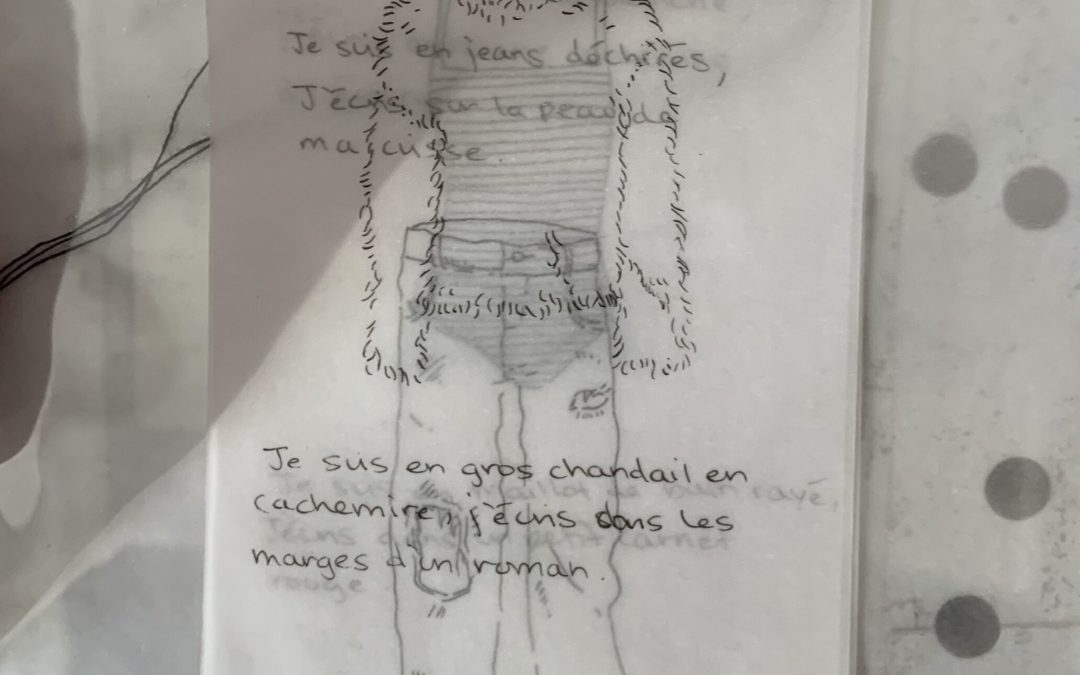 Je suis en jeans déchirés,
J'écris sur la peau de
ma cuisse.
Je suis en gros chandail en
cachemire, j'écris dans les
marges d'un roman.
Je suis en maillot de bain rayé,
J'écris dans un petit carnet
rouge